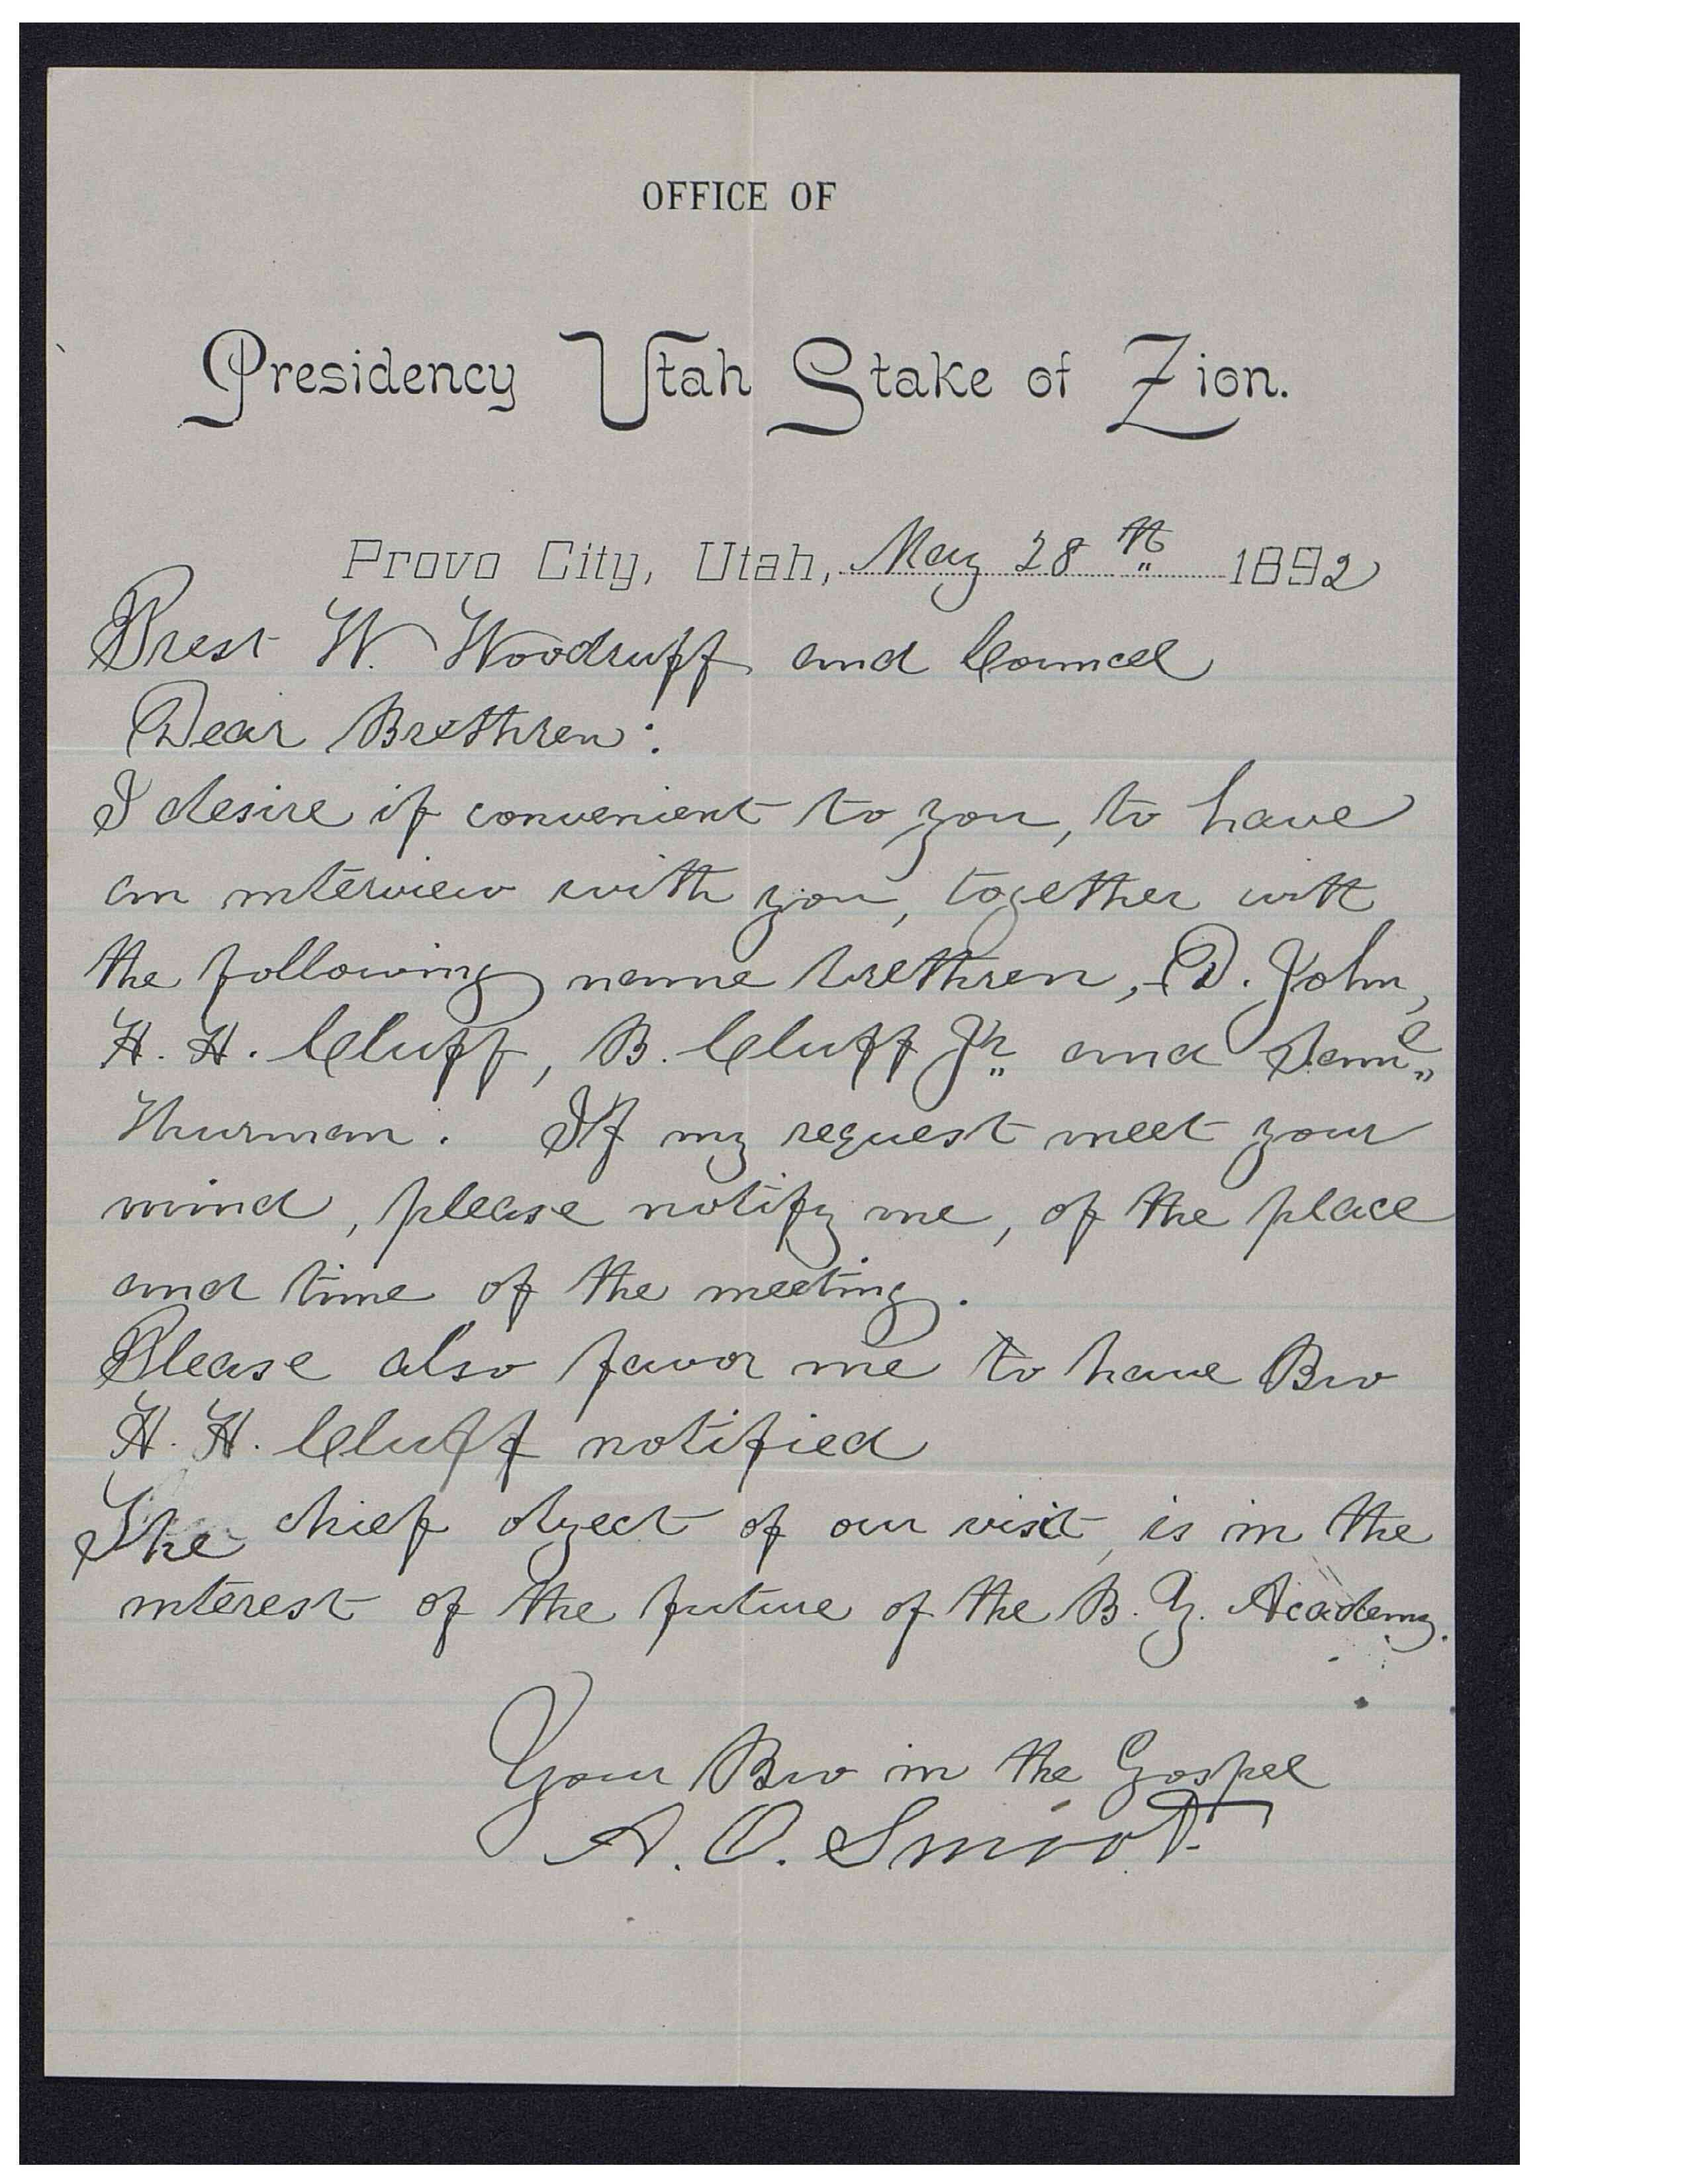 OFFICE OF
Presidency Utah Stake of Zion.
Provo City, Utah, May 28th 1892
Prest W. Woodruff and Councel
Dear Brethren:
I desire if convenient to you, to have
an interview with you, together witt
the following name brethren, - D. John,
H. H. Cluff, B. Cluff Jr and Saml
Thurman. If my request meet your
mind, please notify me, of the place
and time of the meeting.
Please also favor me to have Bro
H. H. Cluff notified
The chief object of our visit, is in the
interest of the future of the B. Y. Academy.
Your Bro in the Gospel
A. O. Smoot